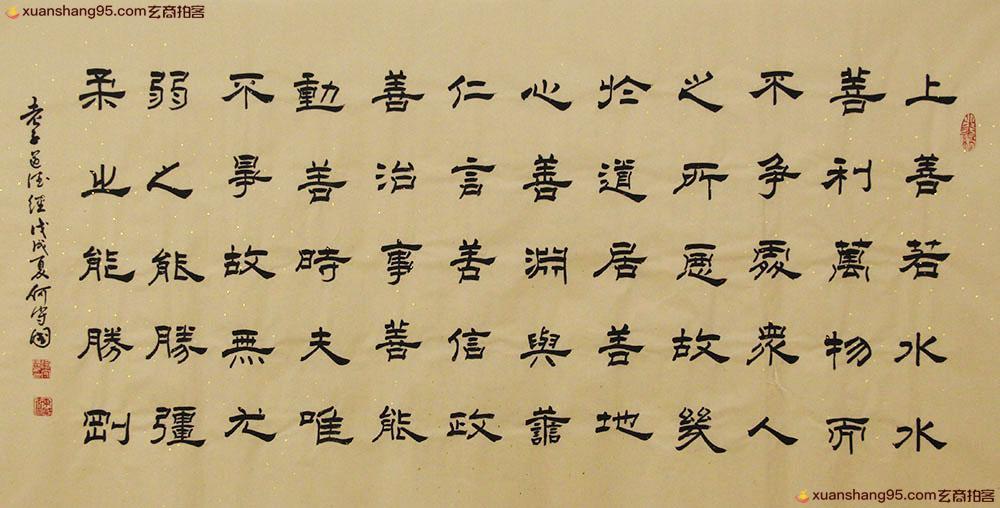 xuanshang95.com玄商拍客
上善若水水
善利萬物而
不争處衆人
之所惡故幾
於道居善地
心善淵與譱
仁言善信政
善治事善能
動善時夫唯
不爭故無尤
弱之能勝彊
柔之能勝剛
老子道德經戊戌夏何
xuanshang95.com玄商拍客